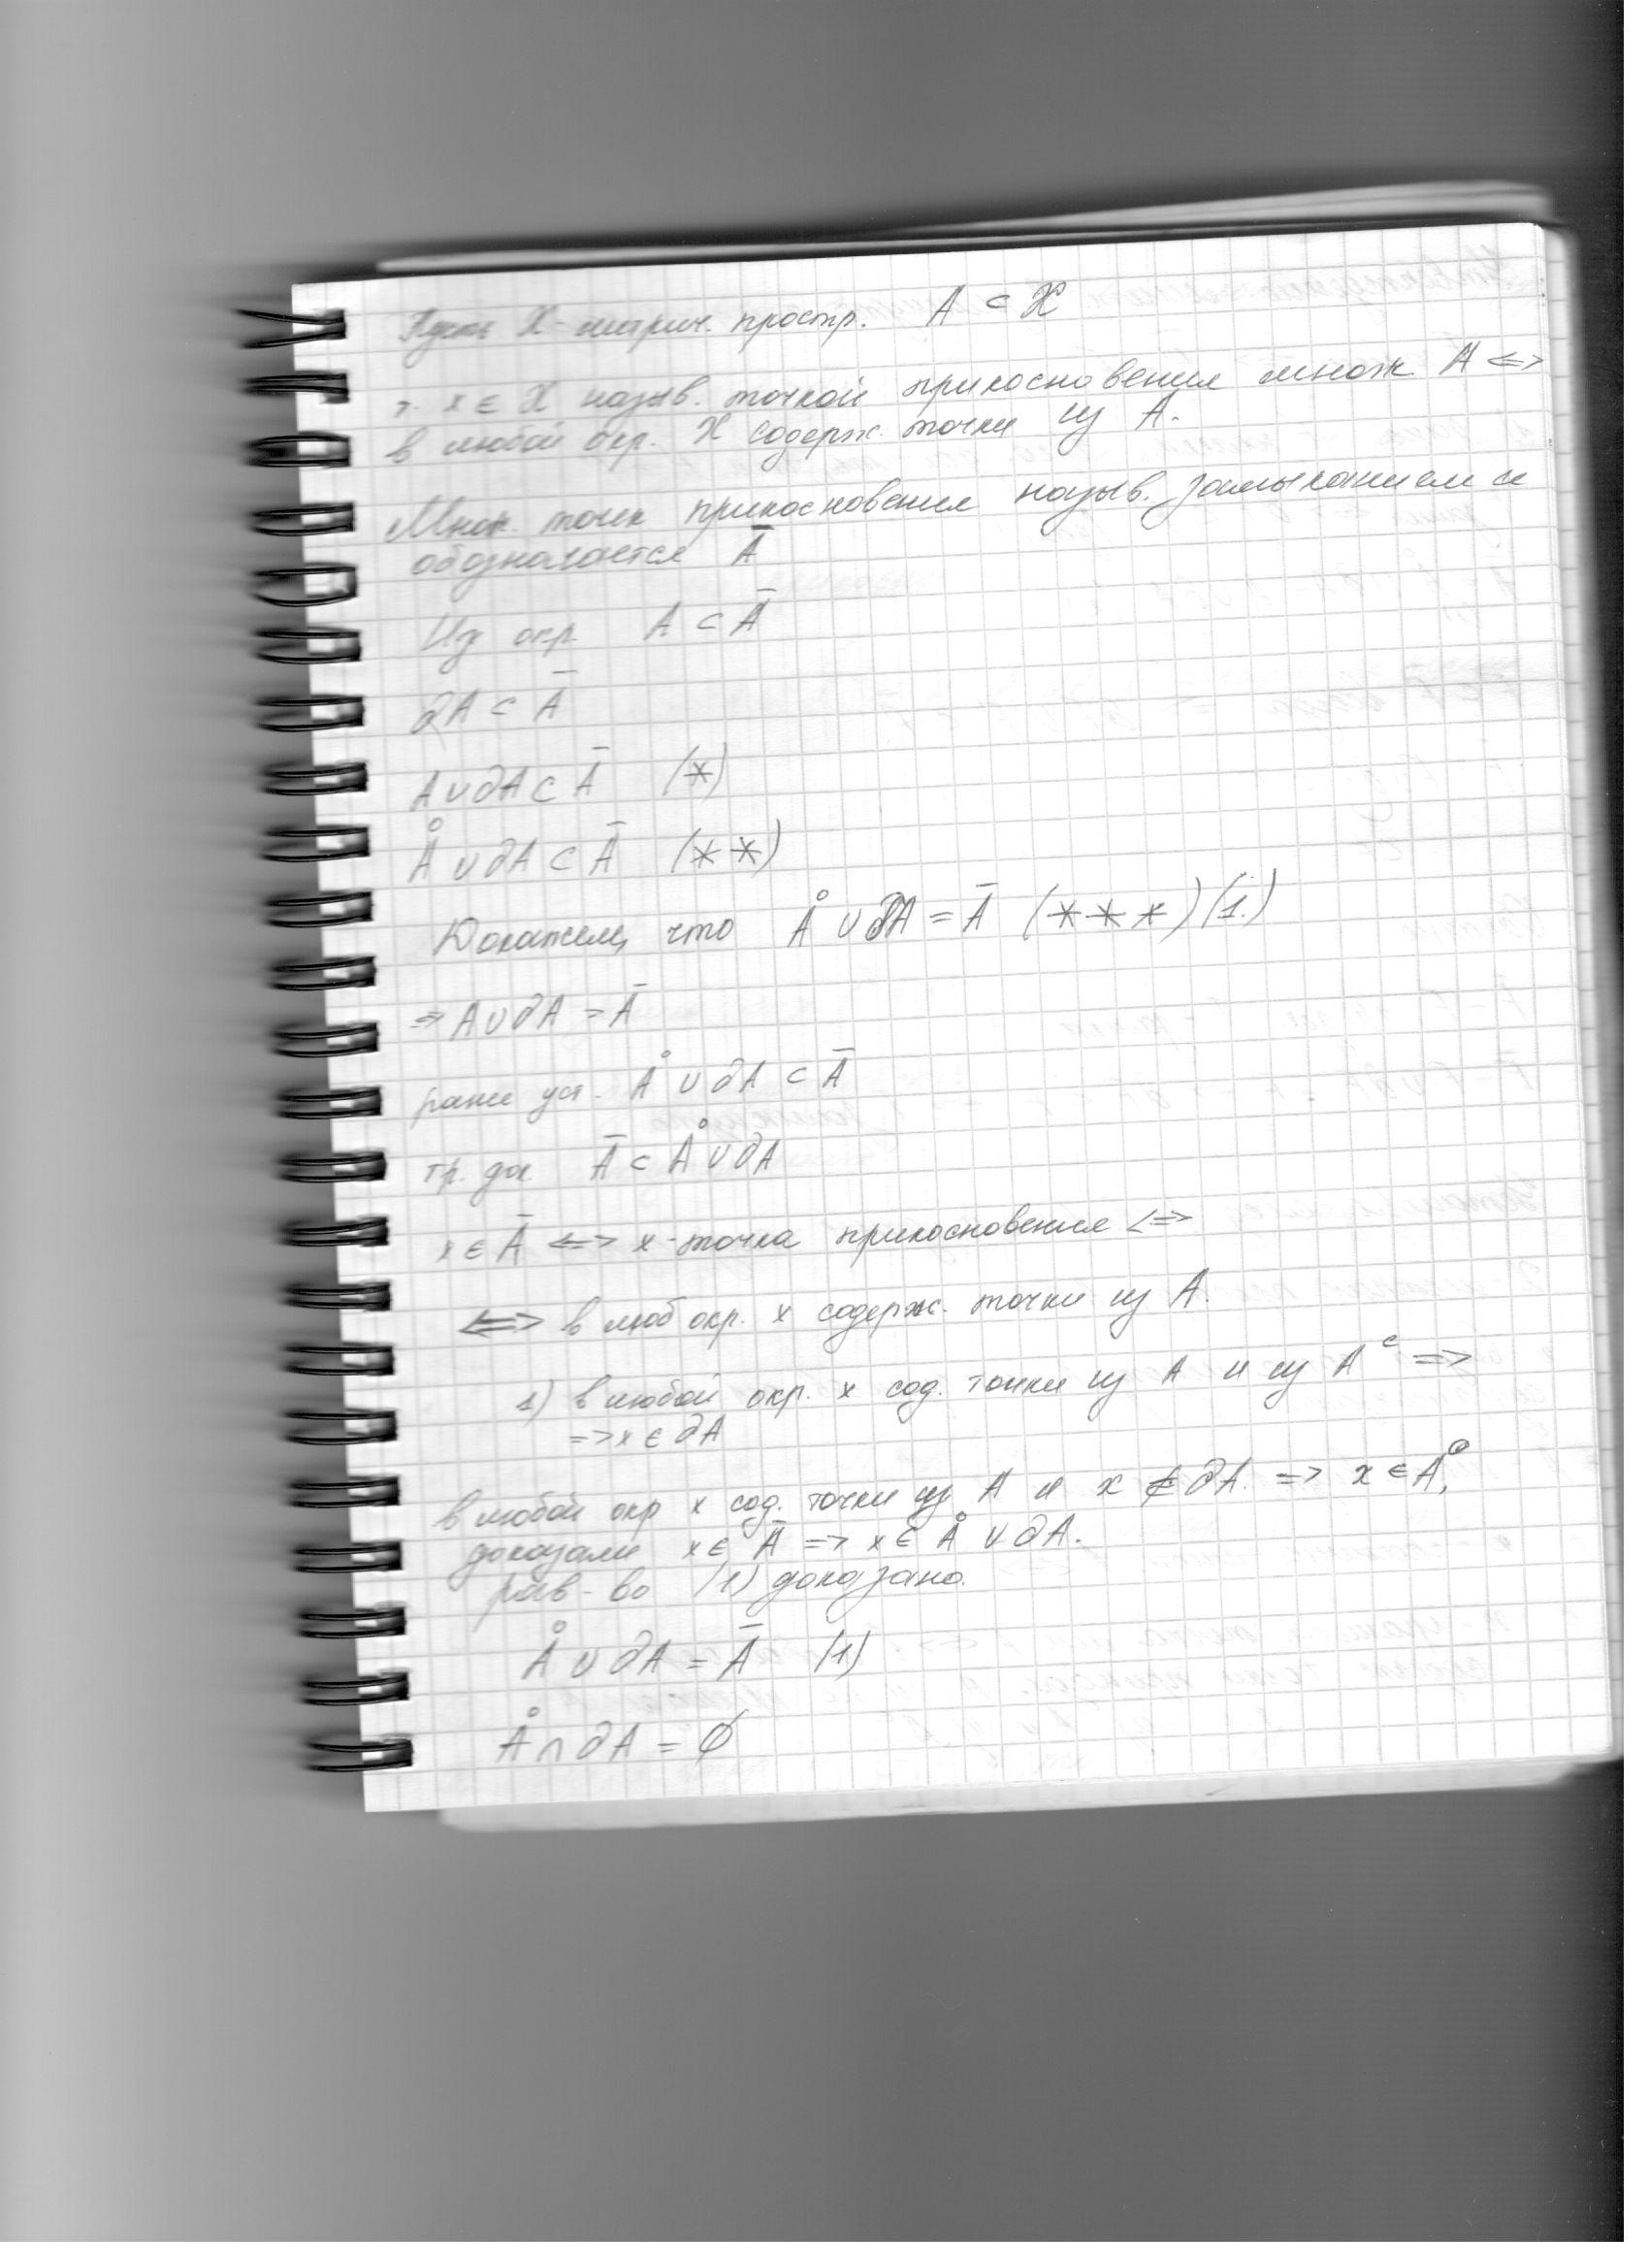 Пусть X - метрич. простр. A ⊂ X
т. x ∈ X назыв. точкой прикосновения множ. A <=>
в любой окр. X содерж. точки из A.
Множ. точек прикосновения назыв. замыканием и
обозначается Ā
Из опр. A ⊂ Ā
∂A ⊂ Ā
A ∪ ∂A ⊂ Ā (*)
Å ∪ ∂A ⊂ Ā (**)
Докажем, что Å ∪ ∂A = Ā (***) (1.)
=> A ∪ ∂A = Ā
ранее уст. Å ∪ ∂A ⊂ Ā
тр. док. Ā ⊂ Å ∪ ∂A
x ∈ Ā <=> x - точка прикосновения <=>
<=> в люб окр. x содерж. точки из A.
1) в любой окр. x сод. точки из A и из Aᶜ =>
=> x ∈ ∂A
в любой окр x сод. точки из A и x ∉ ∂A. => x ∈ Å,
доказали x ∈ Ā => x ∈ Å ∪ ∂A.
рав-во (1) доказано.
Å ∪ ∂A = Ā (1)
Å ∩ ∂A = ∅